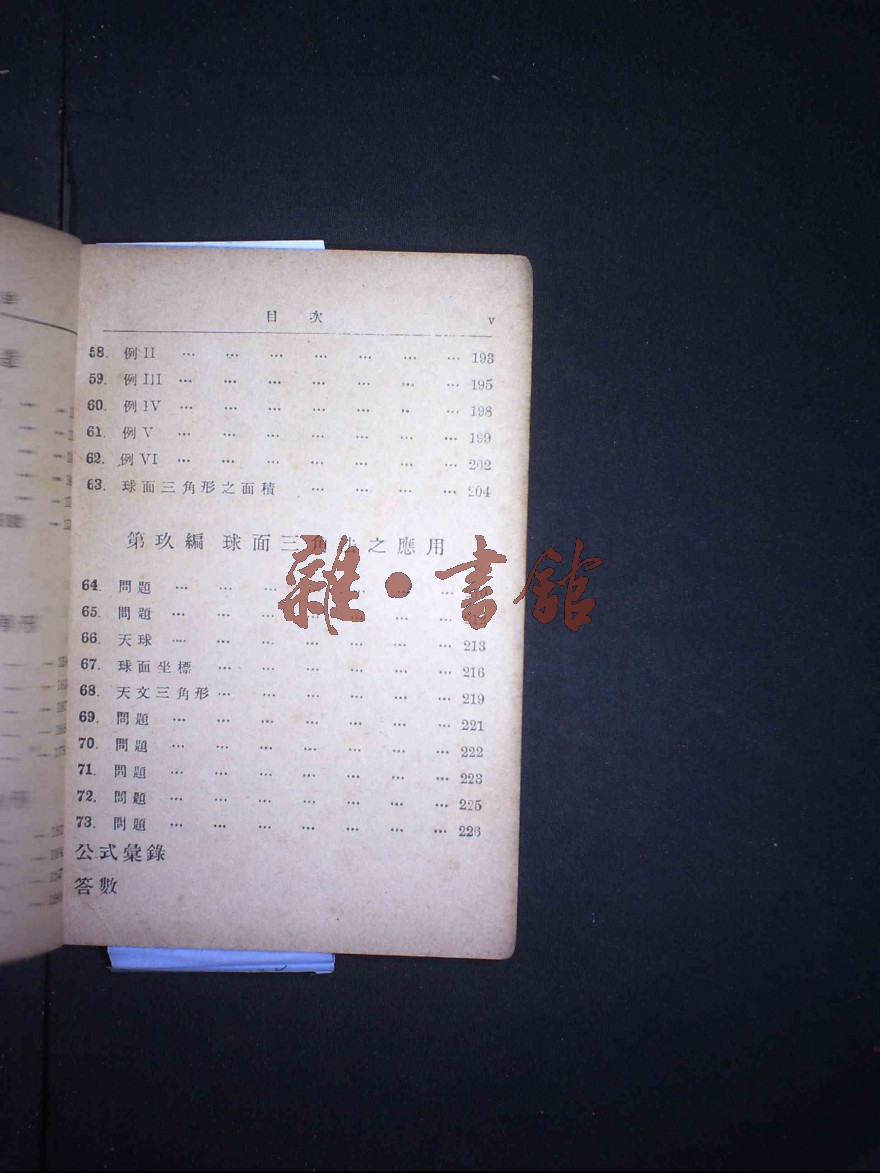 目 次 v
58. 例II … … … … … … … 193
59. 例III … … … … … … … 195
60. 例IV … … … … … … … 198
61. 例V … … … … … … … 199
62. 例VI … … … … … … … 202
63. 球面三角形之面積 … … … … 204
第玖編 球面三角法之應用
64. 問題 … … … … … …
65. 問題 … … … … … …
66. 天球 … … … … … … 213
67. 球面坐標 … … … … … … 216
68. 天文三角形 … … … … … … 219
69. 問題 … … … … … … … 221
70. 問題 … … … … … … … 222
71. 問題 … … … … … … … 223
72. 問題 … … … … … … … 225
73. 問題 … … … … … … … 226
公式彙錄
答數
雜·書館